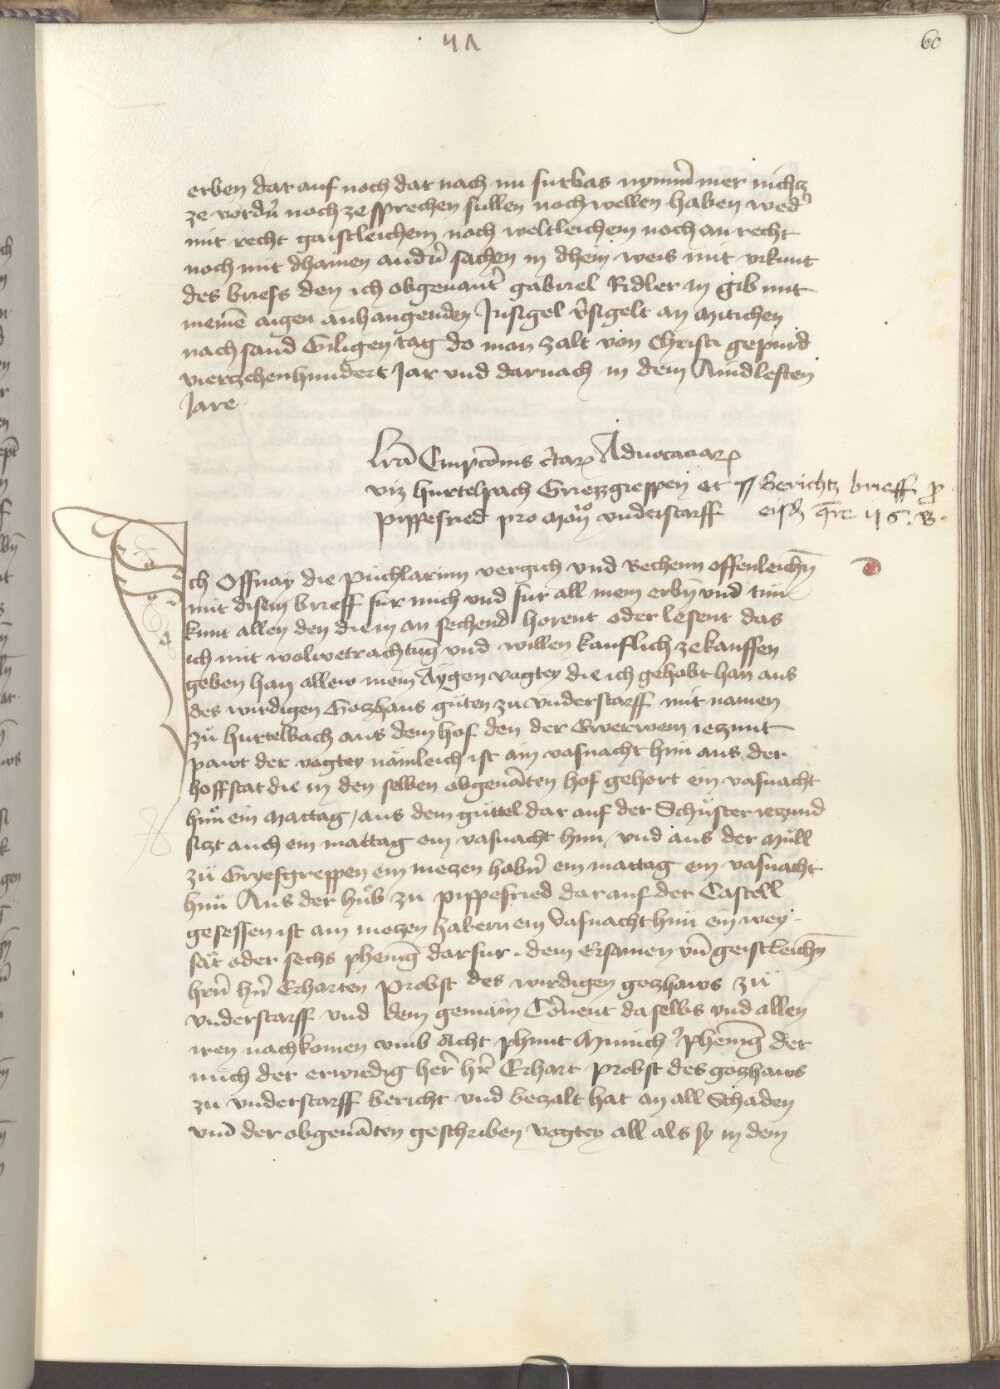 41
60
erben dar auf noch dar nach nu furbas nymmer mer nichtz
ze vordn̄ noch ze sprechen sullen noch wellen haben wed̾
mit recht gaistleichem noch weltleichem noch an recht
noch mit dhainen andn̄ sachen in dhein weis mit vrkunt
des briefs den ich obgenant̾ gabriel Ridler in gib mit
meinē aigen anhangenden Insigel v̾sigelt an Mitichen
nach sand Giligen tag do man zalt von Christi gepurd
vierzehenhundert Jar vnd darnach in dem Aindleften
Jare
Lrā Empcōnis c̾tarꝝ Aduocaciarꝝ
viz hurtelpach Griezgreppen et
pippesried pro Mon̄ vnderstorff
Berichtz brieff ꝓ
Ich Offmay die puchlarinn vergich vnd Bechenn offenleichn̄
mit disem brieff fur mich vnd fur all mein erbn̄ vnd tun
kunt allen den die in an sechend horent oder lesent das
ich mit wolbetrachtūg vnd willen kauflich ze kauffen
geben han allew mein Aygen vogtey die ich gehabt han aus
des wirdigen Gozhaus guten zu vnderstorff mit namen
zu hurtelbach aus dem hof den der Ewerwein iezunt
pawt der vogtey namleich ist ain vasnacht hun aus der
hoffstat die in den selben obgenāten hof gehort ein vasnacht
hun ein mattag / aus dem guttel dar auf der Schuster iezund
sizt auch ein mattag ein vasnacht hun / vnd aus der Mull
zu Gryesgreppen ein mezen habn̄ ein mattag ein vasnacht
hun Aus der hub zu pippesried dar auf der Castell
gesessen ist ain mezen habern ein vasnacht hun ein wey-
sat oder sechs phenīg darfur . dem Ersamen vn̄ geistleichn̄
hrn̄ hn̄ Erharten Probst des wirdigen gozhaws zu
vnderstorff vnd dem gemain Cōuent daselbs vnd allen
iren nachkomen vmb Acht phunt Munich̾ phenīg der
mich der erwirdig her̄ hr̄ Erhart probst des gozhaws
zu vnderstorff bericht vnd bezalt hat an all Schaden
vnd der obgenāten geschriben vogtey all als sy in dem